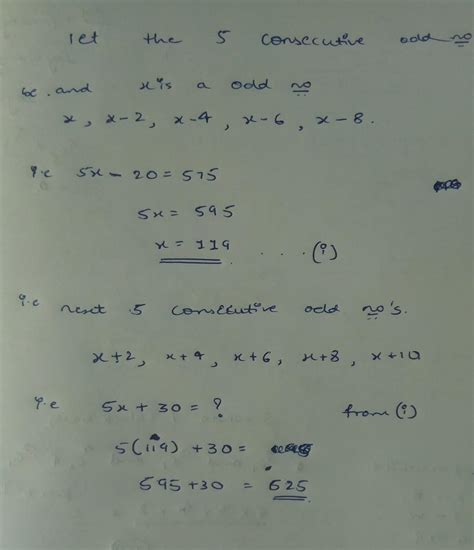 let the 5 consecutive odd no
be. and x is a odd no
x, x-2, x-4, x-6, x-8.
i.e 5x - 20 = 575
5x = 595
x = 119 .... (i)
i.e next 5 consecutive odd no's.
x+2, x+4, x+6, x+8, x+10
i.e 5x + 30 = ? from (i)
5(119) + 30 =
595+30 = 625